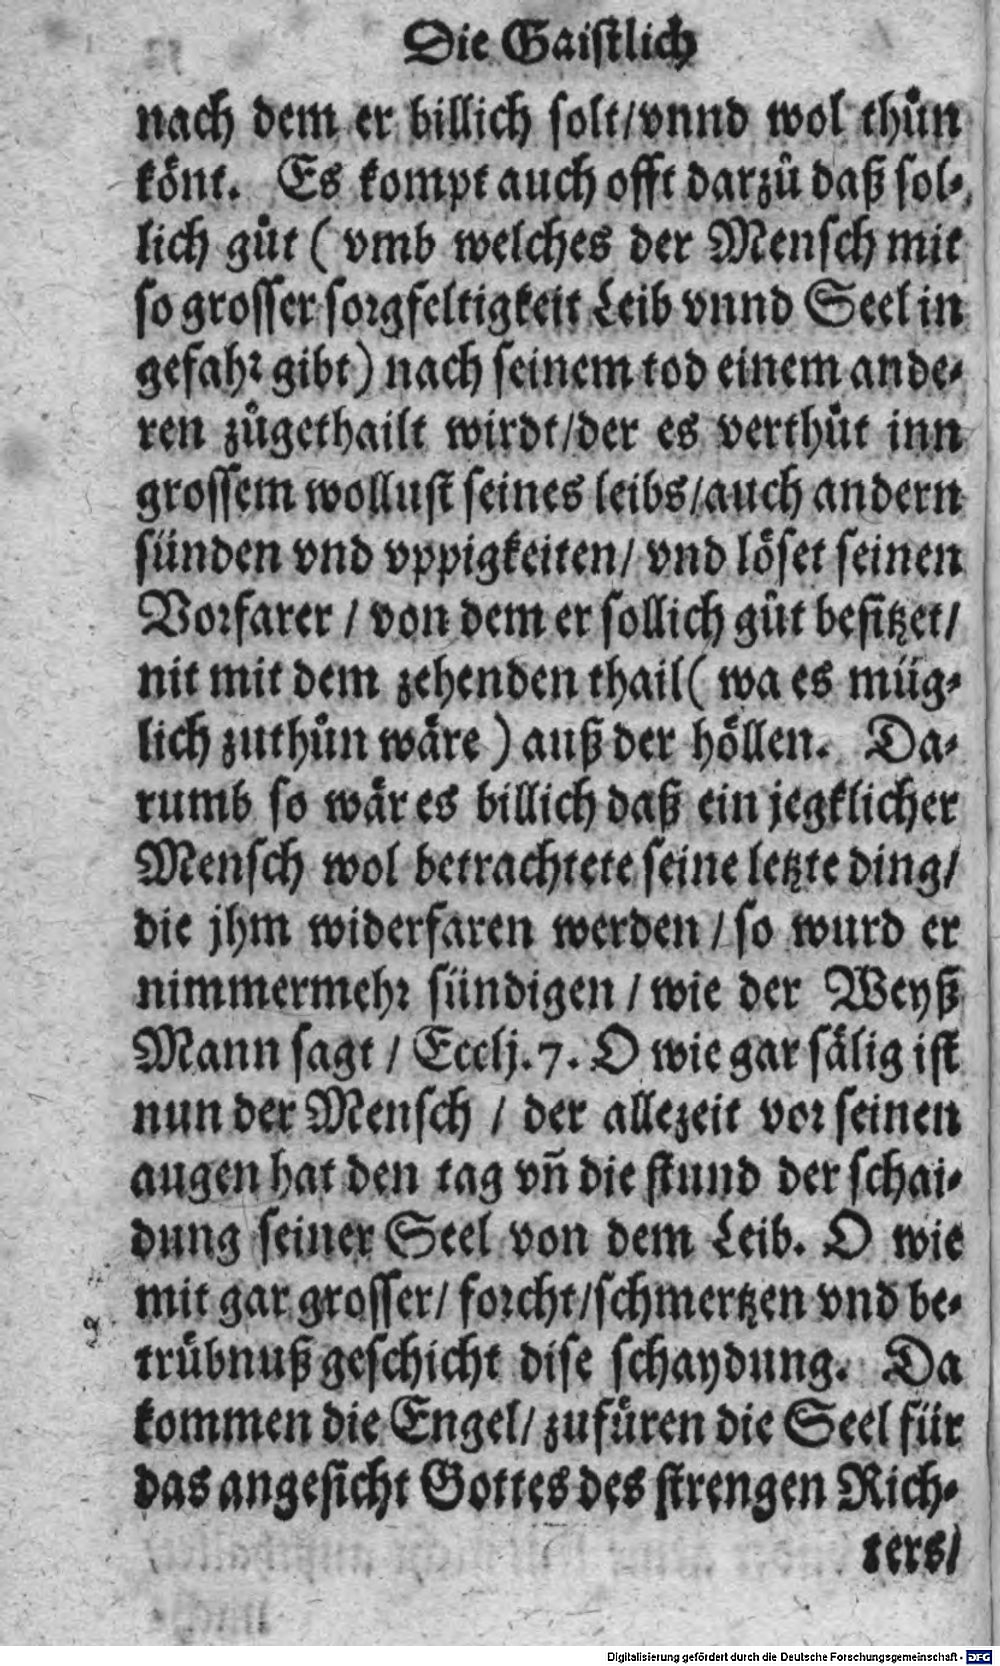 Die Gaistlich
nach dem er billich solt/vnnd wol thůn
könt. Es kompt auch offt darzů daß sol-
lich gůt ( vmb welches der Mensch mit
so grosser sorgfeltigkeit Leib vnnd Seel in
gefahr gibt ) nach seinem tod einem ande-
ren zůgethailt wirdt/der es verthůt inn
grossem wollust seines leibs/auch andern
sünden vnd vppigkeiten/ vnd löset seinen
Vorfarer / von dem er sollich gůt besitzet/
nit mit dem zehenden thail ( wa es müg-
lich zuthůn wäre ) auß der höllen. Da-
rumb so wär es billich daß ein jegklicher
Mensch wol betrachtete seine letzte ding/
die jhm widerfaren werden / so wurd er
nimmermehr sündigen / wie der Weyß
Mann sagt / Ecclj. 7. O wie gar sälig ist
nun der Mensch / der allezeit vor seinen
augen hat den tag vñ die stund der schai-
dung seiner Seel von dem Leib. O wie
mit gar grosser/ forcht/schmertzen vnd be-
trübnuß geschicht dise schaydung. Da
kommen die Engel/ zufüren die Seel für
das angesicht Gottes des strengen Rich-
ters/
Digitalisierung gefördert durch die Deutsche Forschungsgemeinschaft - DFG